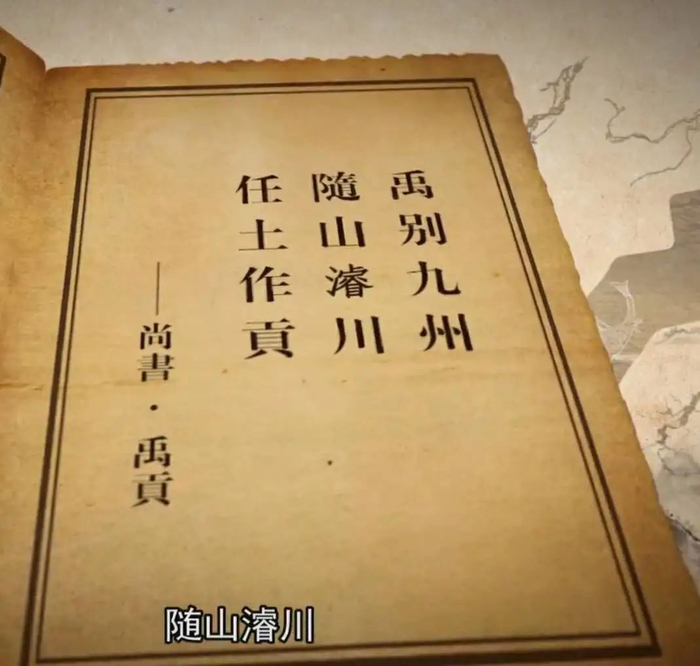 禹別九州
隨山濬川
任土作貢
——尚書·禹貢
随山濬川